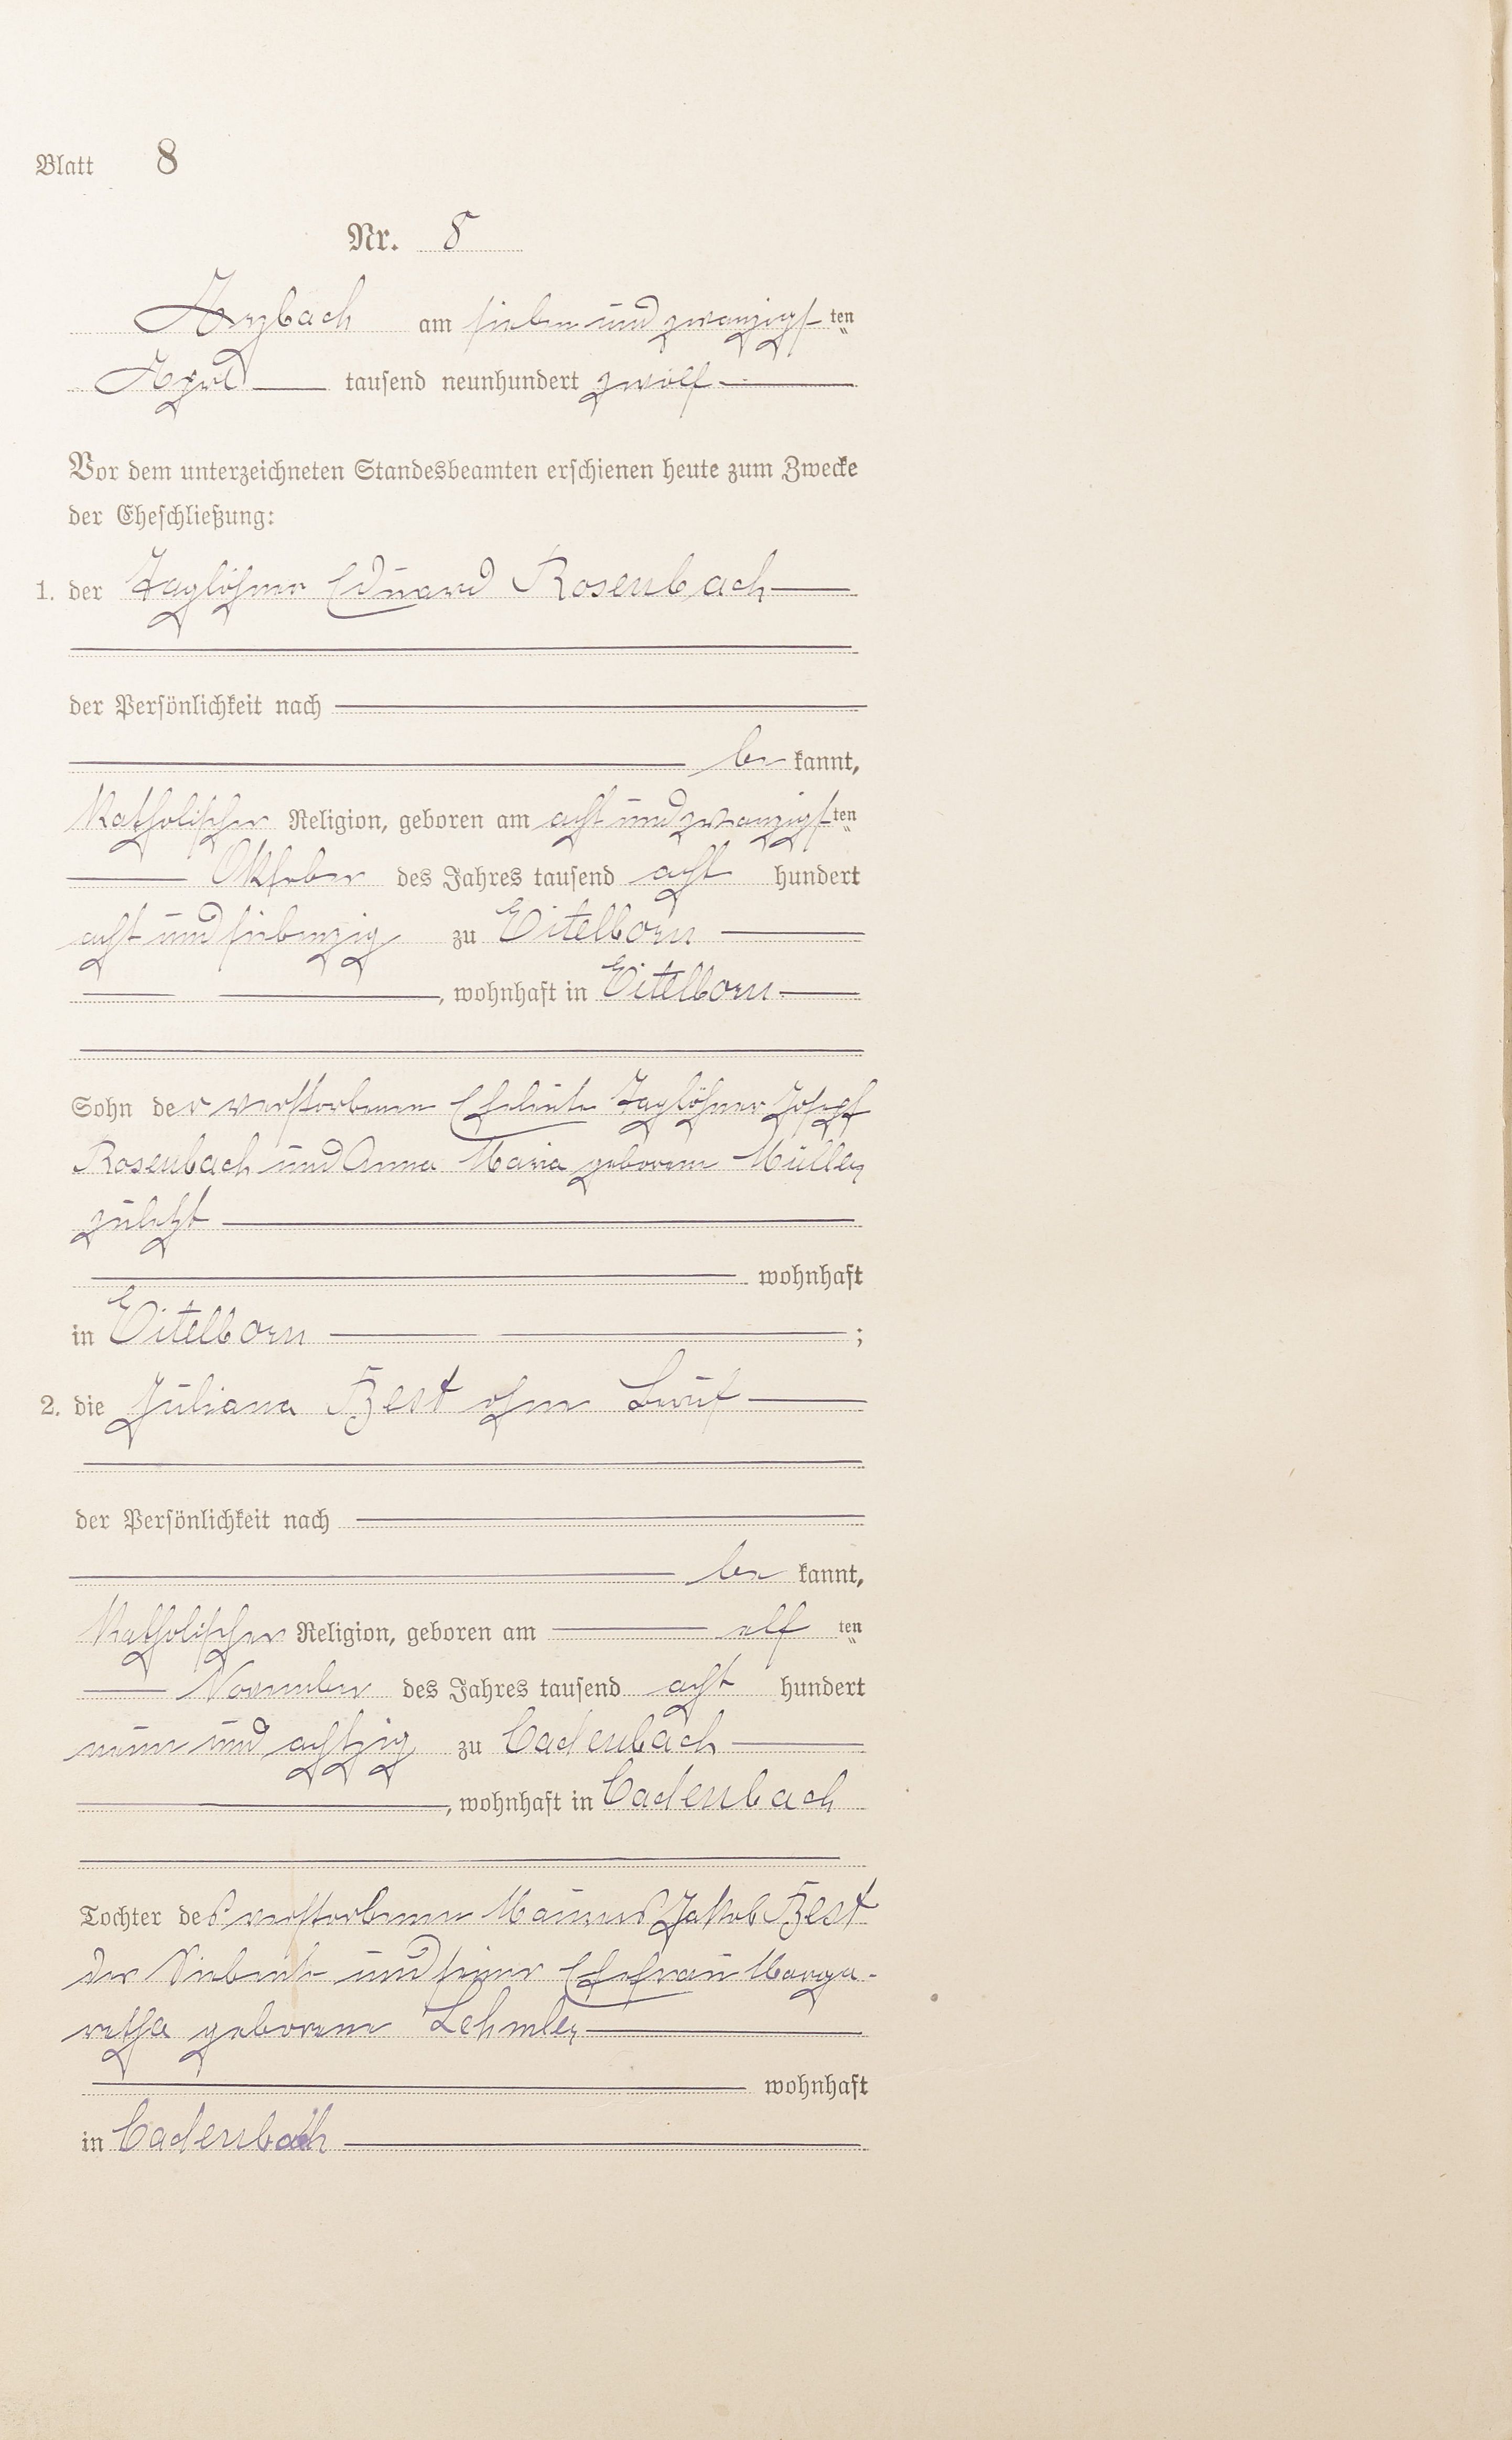 Blatt 8
Nr. 8
Arzbach am siebenundzwanzigsten
April tausend neunhundert zwölf
Vor dem unterzeichneten Standesbeamten erschienen heute zum Zwecke
der Eheschließung:
1. der Taglöhner Eduard Rosenbach
der Persönlichkeit nach
be kannt,
katholischer Religion, geboren am acht und zwanzigsten
Oktober des Jahres tausend acht hundert
acht und siebenzig zu Eitelborn
, wohnhaft in Eitelborn
Sohn der verstorbenen Eheleute Taglöhner Josef
Rosenbach und Anna Maria geborene Müller
zuletzt
wohnhaft
in Eitelborn ;
2. die Juliana Best ohne Beruf
der Persönlichkeit nach
be kannt,
katholischer Religion, geboren am elf ten
November des Jahres tausend acht hundert
neun und achtzig zu Cadenbach
, wohnhaft in Cadenbach
Tochter des verstorbenen Jakob Best
der Siebente und seiner Ehefrau Marga-
retha geborene Lehmler
wohnhaft
in Cadenbach